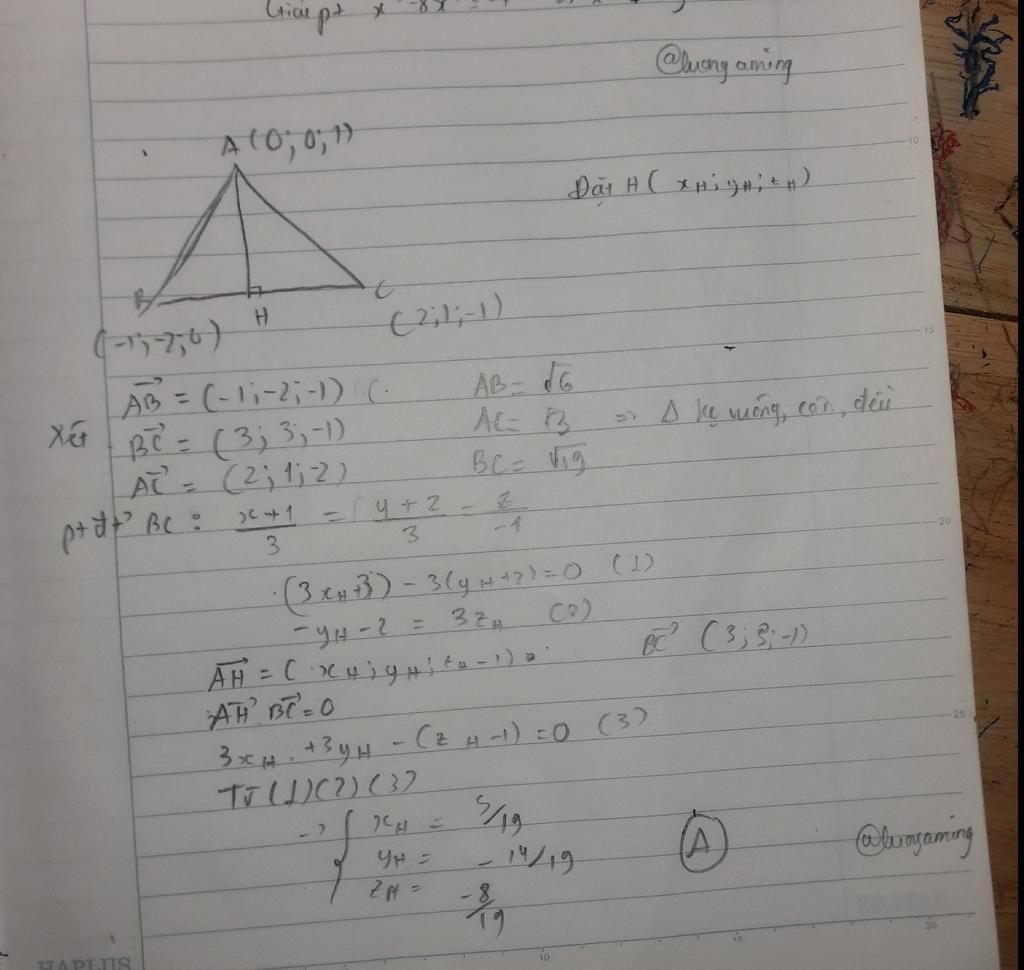 Giải pt x -8x
@luongaming
A (0; 0; 1)
Đặt H ( xH; yH; zH)
B
H
C
(-1; -2; 0)
(2; 1; -1)
AB = (-1; -2; -1) (. AB = √6
Xét BC = (3; 3; -1) AC = √3 => Δ kọ vuông, cân, đều
AC = (2; 1; -2) BC = √19
ptđt BC : x+1/3 = y+2/3 = z/-1
(3xH+3) - 3(yH+2) = 0 (1)
-yH - 2 = 3zH (2)
AH = (xH; yH; zH-1) BC (3; 3; -1)
AH BC = 0
3xH + 3yH - (zH-1) = 0 (3)
Từ (1)(2)(3)
-> { xH = 5/19
yH = -14/19
zH = -8/19
A
@luongaming
HAPLUS
10
15
20
25
10
15
20